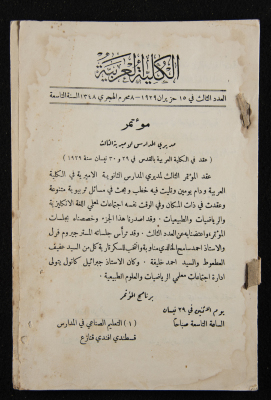 الكلية العربية
العدد الثالث في ١٥ حزيران ١٩٢٩ – ٨ محرم الهجري ١٣٤٨ السنة التاسعة
مؤتمر
مديري المدارس الاميرية الثالث
( عقد في الكلية العربية بالقدس في ٢٩ و ٣٠ نيسان سنة ١٩٢٩ )
عقد المؤتمر الثالث لمديري المدارس الثانوية الاميرية في الكلية
العربية ودام يومين وتليت فيه خطب وبحث في مسائل تربوية متنوعة
وعقدت في ذات المكان وفي الوقت نفسه اجتماعات لمعلمي اللغة الانكليزية
والرياضيات والطبيعيات . وقد اصدرنا هذا الجزء وخصصناه بجلسات
المؤتمر واعتضنا به عن العدد الثالث . وقد ترأس جلساته المستر جيروم فرل
والاستاذ احمد سامح الخالدي مناوبة وانتخب للسكرتارية كل من السيد عفيف
الطعطوط والسيد احمد خليفة . وكان الاستاذ جبرائيل كاتول يتولى
ادارة اجتماعات معلمي الرياضيات والعلوم الطبيعية .
برنامج المؤتمر
يوم الاثنين في ٢٩ نيسان
الساعة التاسعة صباحاً
( ١ ) التعليم الصناعي في المدارس
قسطندي افندي قنازع